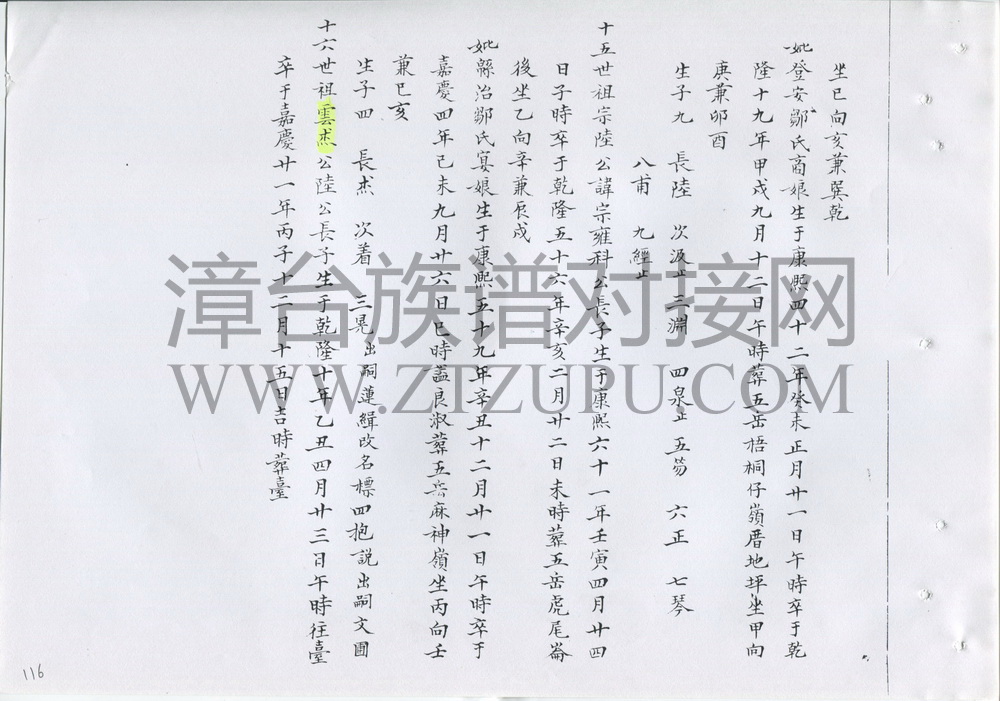 坐巳向亥兼巽乾
妣登安鄒氏商娘生于康熙四十二年癸未正月廿一日午時卒于乾
隆十九年甲戌九月十二日午時葬五岳梧桐仔嶺厝地坪坐甲向
庚兼卯酉
生子九 長陸 次汲止 三淵 四泉止 五笏 六正 七琴
八甫 九經止
十五世祖宗陸公諱宗雍科公長子生于康熙六十一年壬寅四月廿四
日子時卒于乾隆五十六年辛亥二月廿二日未時葬五岳虎尾崙
後坐乙向辛兼辰戌
妣縣治鄒氏宴娘生于康熙五十九年辛丑十二月廿一日午時卒于
嘉慶四年己未九月廿六日巳時謚良淑葬五岳麻神嶺坐丙向壬
兼巳亥
生子四 長杰 次着 三晃出嗣蓮緝改名標四抱説出嗣文圃
十六世祖雲杰公陸公長子生于乾隆十年乙丑四月廿三日午時往臺
卒于嘉慶廿一年丙子十二月十五日吉時葬臺
116
漳台族谱对接网
WWW.ZTZUPU.COM